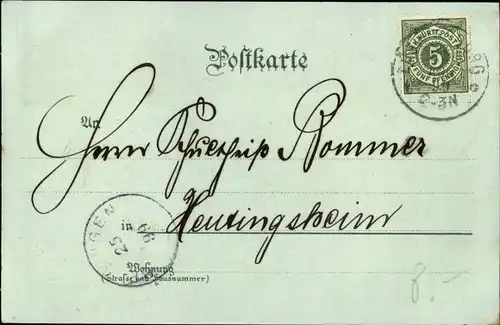 Postkarte
K. WÜRTT. POST
5
FÜNF PFENNIG
2-3N
An
Herrn Schultheiß Rommer
in Heutingsheim
25
Wohnung
(Straße und Hausnummer)
8.-